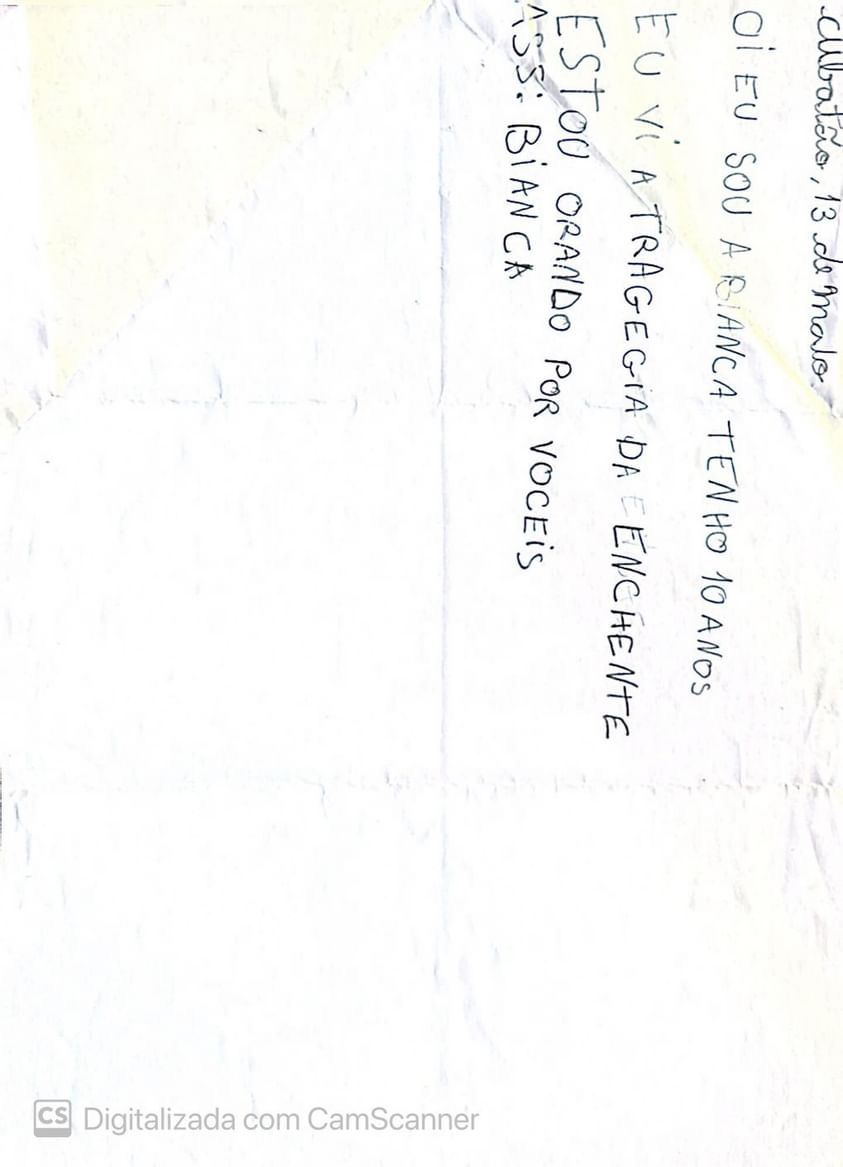 Cubatão, 13 de maio
Oi EU SOU A BIANCA TENHO 10 ANOS
EU Vi A TRAGEGiA DA E ENCHENTE
ESTOU ORANDO POR VOCEiS
ASS: BiANCA
CS Digitalizada com CamScanner